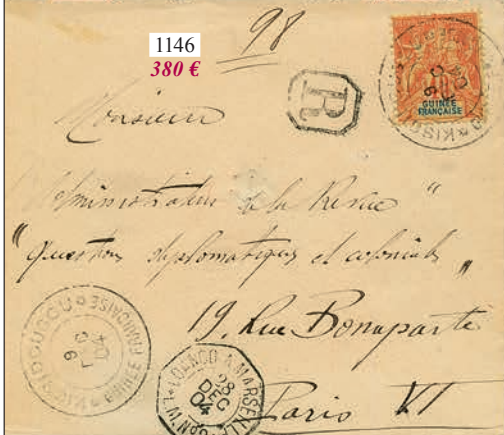 98
1146
380 €
R
GUINÉE
FRANÇAISE
Monsieur
l'Administrateur de la Revue "
"Questions diplomatiques et coloniales "
19, Rue Bonaparte
Paris VI
GUINEE FRANÇAISE
KISSIDOUGOU
6
04
LOANGO A MARSEILLE
28
DEC
04